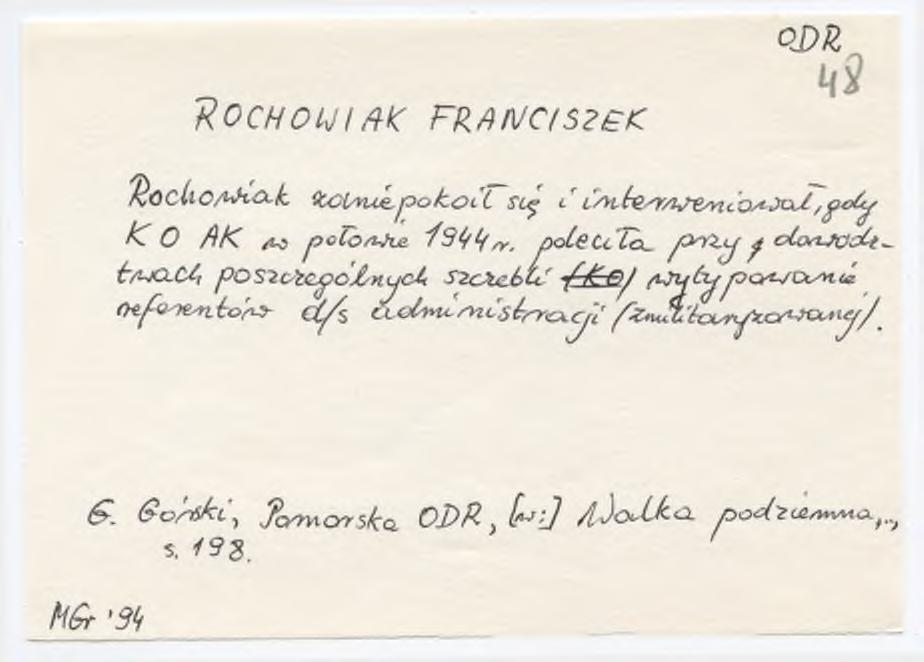 ODR
48
ROCHOWIAK FRANCISZEK
Rochowiak zaniepokoił się i interweniował, gdy
K O AK w połowie 1944 r. poleciła przy dowódz-
twach poszczególnych szczebli (KO) wytypowanie
referentów d/s administracji (zmilitaryzowanej).
G. Górski, Pomorska ODR, [w:] Walka podziemna...,
s. 198.
MGr '94